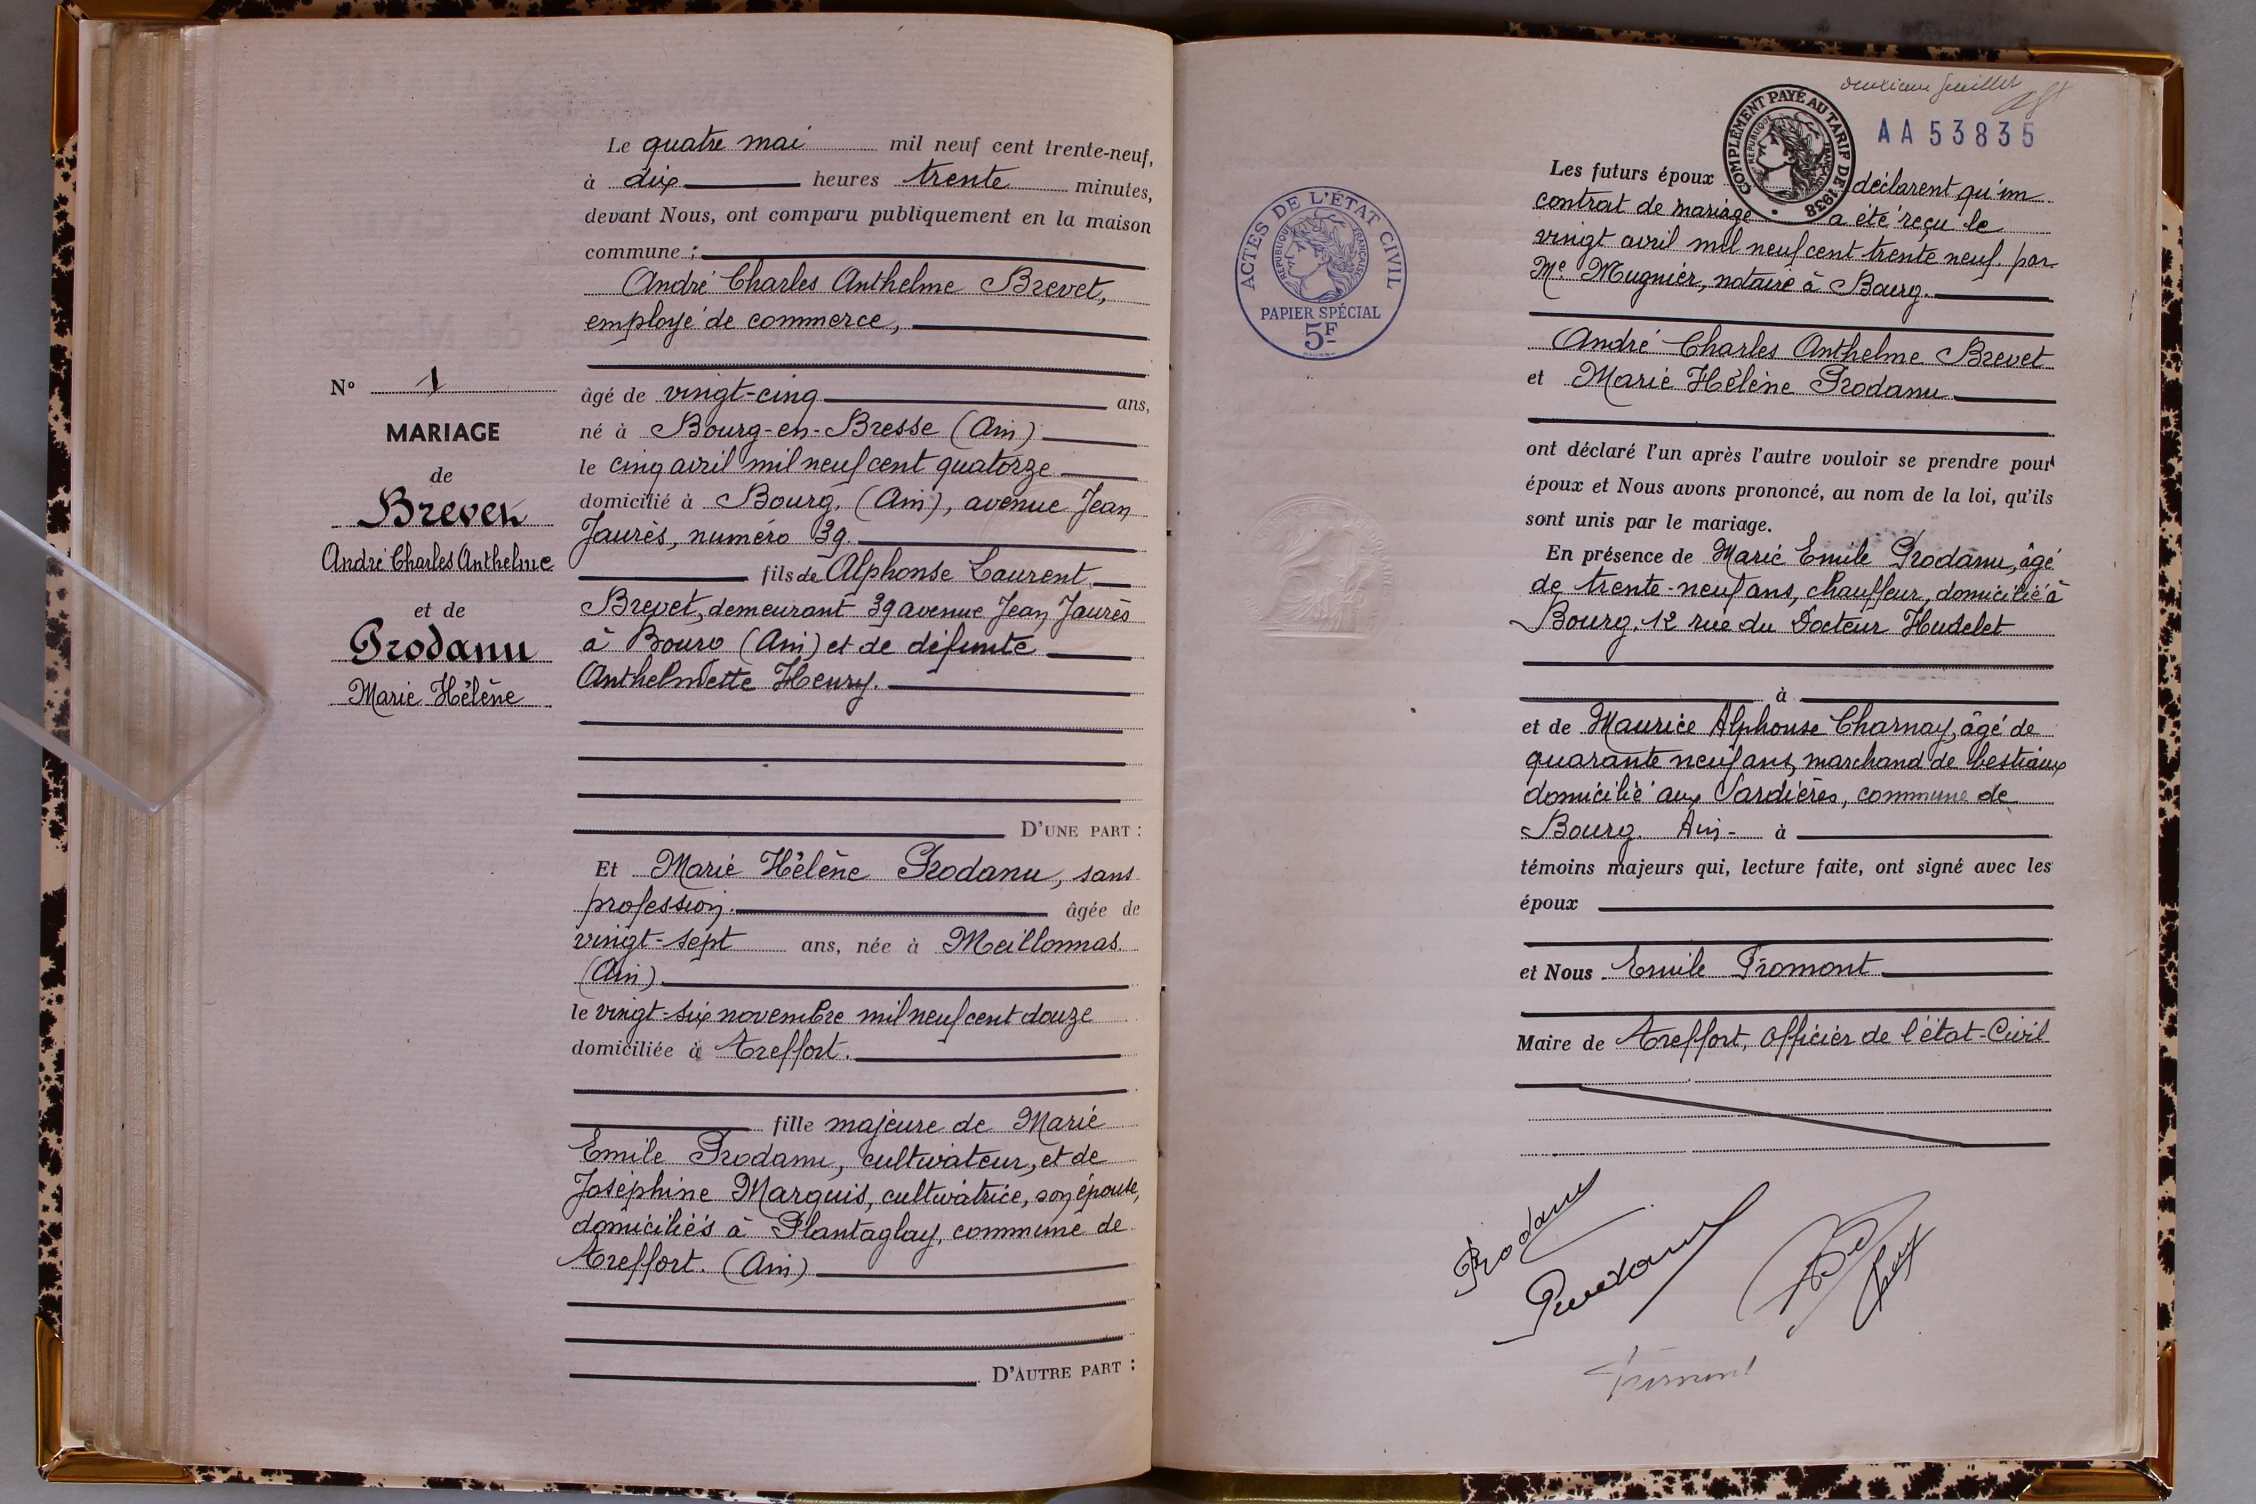 Le quatre mai mil neuf cent trente-neuf,
à dix heures trente minutes,
devant Nous, ont comparu publiquement en la maison
commune :
André Charles Anthelme Brevet,
employé de commerce,
N° 1
MARIAGE
de
Brevet
André Charles Anthelme
et de
Prodanu
Marie Hélène
âgé de vingt-cinq ans,
né à Bourg-en-Bresse (Ain)
le cinq avril mil neuf cent quatorze
domicilié à Bourg. (Ain), avenue Jean
Jaurès, numéro 39.
fils de Alphonse Laurent
Brevet, demeurant 39 avenue Jean Jaurès
à Bourg (Ain) et de défunte
Anthelmette Henry.
D'UNE PART :
Et Marie Hélène Prodanu, sans
profession. âgée de
vingt-sept ans, née à Meillonnas
(Ain)
le vingt-six novembre mil neuf cent douze
domiciliée à Treffort.
fille majeure de Marie
Emile Prodanu, cultivateur, et de
Joséphine Marquis, cultivatrice, son épouse,
domiciliés à Plantaglay, commune de
Treffort. (Ain)
D'AUTRE PART :
deuxième feuillet
COMPLÉMENT PAYÉ AU TARIF DE 1938
RÉPUBLIQUE FRANÇAISE
AA 53835
ACTES DE L'ÉTAT CIVIL
RÉPUBLIQUE FRANÇAISE
PAPIER SPÉCIAL
5F
Les futurs époux déclarent qu'un
contrat de mariage a été reçu le
vingt avril mil neuf cent trente neuf. par
Me Mugnier, notaire à Bourg.
André Charles Anthelme Brevet
et Marie Hélène Prodanu
ont déclaré l'un après l'autre vouloir se prendre pour
époux et Nous avons prononcé, au nom de la loi, qu'ils
sont unis par le mariage.
En présence de Marie Emile Prodanu, âgé
de trente-neuf ans, chauffeur, domicilié à
Bourg, 12 rue du Docteur Hudelet
à
et de Maurice Alphonse Charnay, âgé de
quarante neuf ans, marchand de bestiaux
domicilié aux Sardières, commune de
Bourg. Ain - à
témoins majeurs qui, lecture faite, ont signé avec les
époux
et Nous Emile Fromont
Maire de Treffort, officier de l'état-Civil
Prodanu